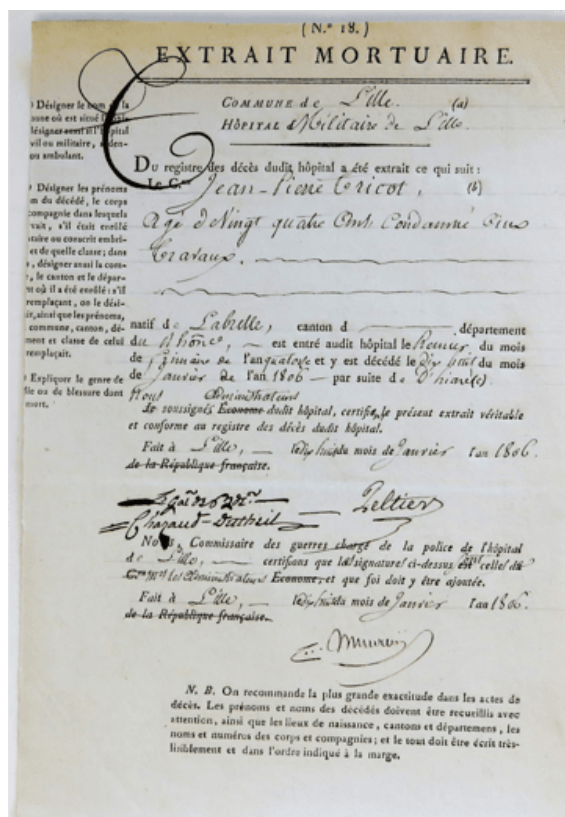 ( N.° 18. )
EXTRAIT MORTUAIRE.
COMMUNE de Lille. (a)
HÔPITAL Militaire de Lille
DU registre des décès dudit hôpital a été extrait ce qui suit :
Le C.en Jean-Pierre Tricot, (b)
Agé de Vingt quatre ans, Condamné aux
Travaux.
natif de canton d département
du Rhône, est entré audit hôpital le Premier du mois
de frimaire de l'an quatorze et y est décédé le dix huit du mois
de Janvier de l'an 1806 par suite de
Nous administrateurs
Le soussignés Econome dudit hôpital, certifions le présent extrait véritable
et conforme au registre des décès dudit hôpital.
Fait à Lille, le dix huit du mois de Janvier l'an 1806.
de la République française.
Peltier
Chazaud-
Nous, Commissaire des guerres chargé de la police de l'hôpital
de Lille, certifions que les signatures ci-dessus celles de
les administrateurs Econome, et que foi doit y être ajoutée.
Fait à Lille, le dix huit du mois de Janvier l'an 1806.
de la République française.
N. B. On recommande la plus grande exactitude dans les actes de
décès. Les prénoms et noms des décédés doivent être recueillis avec
attention, ainsi que les lieux de naissance, cantons et départemens, les
noms et numéros des corps et compagnies; et le tout doit être écrit très-
lisiblement et dans l'ordre indiqué à la marge.
) Désigner le nom de la
où est situé
désigner aussi si l'hôpital
civil ou militaire,
ou ambulant.
) Désigner les prénoms
du décédé, le corps
compagnie dans lesquels
s'il était enrôlé
ou conscrit
et de quelle classe; dans
, désigner aussi la
, le canton et le
où il a été enrôlé: s'il
remplaçant, on le
ainsi que les prénoms,
commune, canton,
et classe de celui
remplaçait.
) Expliquer le genre de
ou de blessure dont
mort.